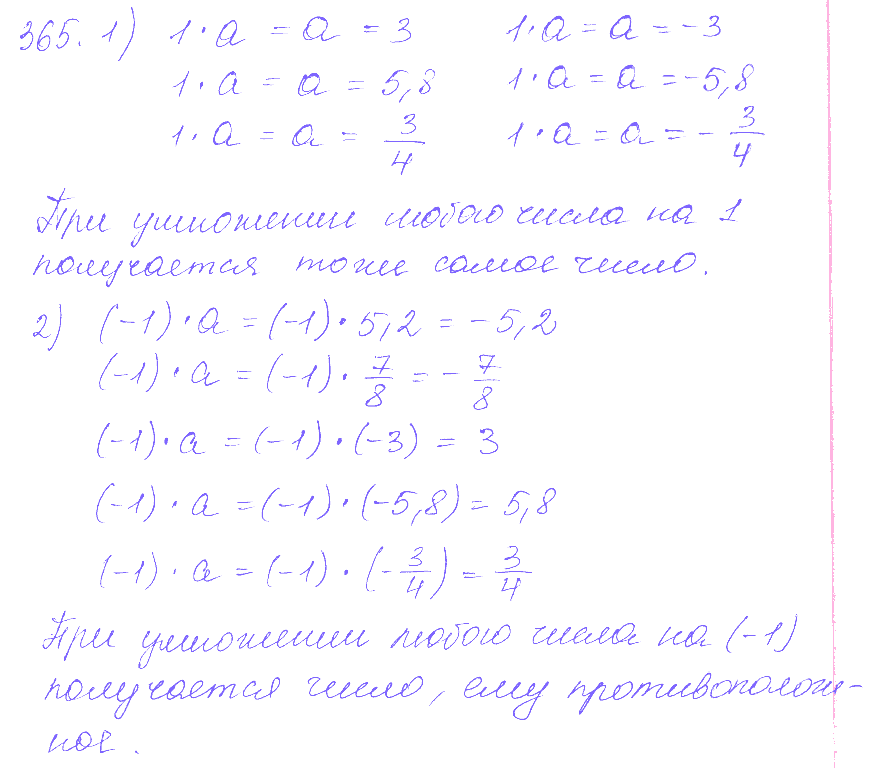 365. 1) 1 · a = a = 3 1 · a = a = -3
1 · a = a = 5,8 1 · a = a = -5,8
1 · a = a = 3/4 1 · a = a = - 3/4
При умножении любого числа на 1
получается тоже самое число.
2) (-1) · a = (-1) · 5,2 = -5,2
(-1) · a = (-1) · 7/8 = - 7/8
(-1) · a = (-1) · (-3) = 3
(-1) · a = (-1) · (-5,8) = 5,8
(-1) · a = (-1) · (- 3/4) = 3/4
При умножении любого числа на (-1)
получается число, ему противополож-
ное.